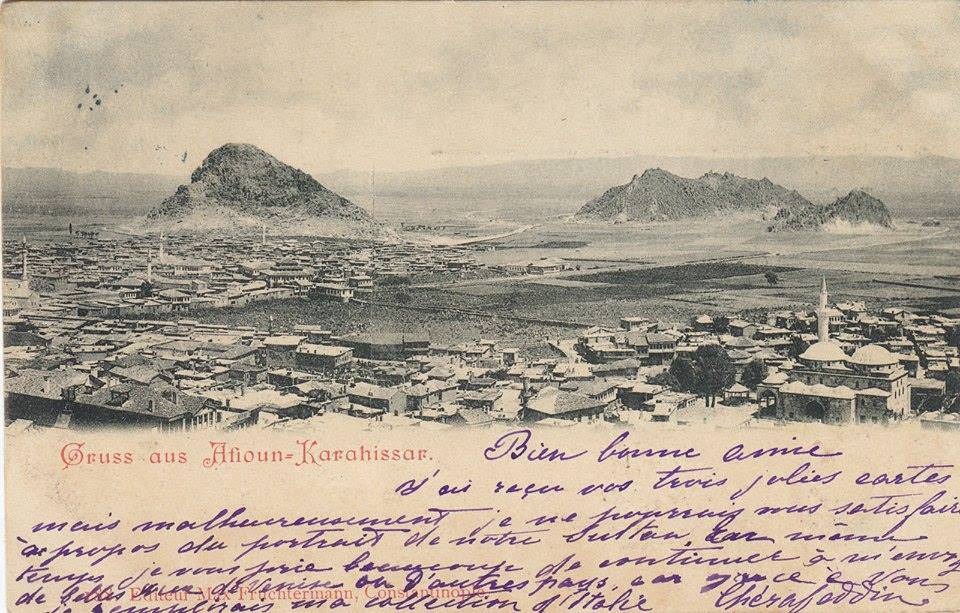 Gruss aus Afioun-Karahissar.
Bien bonne amie
J'ai reçu vos trois jolies cartes
mais malheureusement je ne pourrais vous satisfaire
à propos du portrait de notre Sultan, car même
temps je vous prie beaucoup de continuer à m'envoy
de belles vues de Venise ou D'autres pays, car grace à vous
je ma collection d'Italie
Editeur Max Fruchtermann, Constantinople.